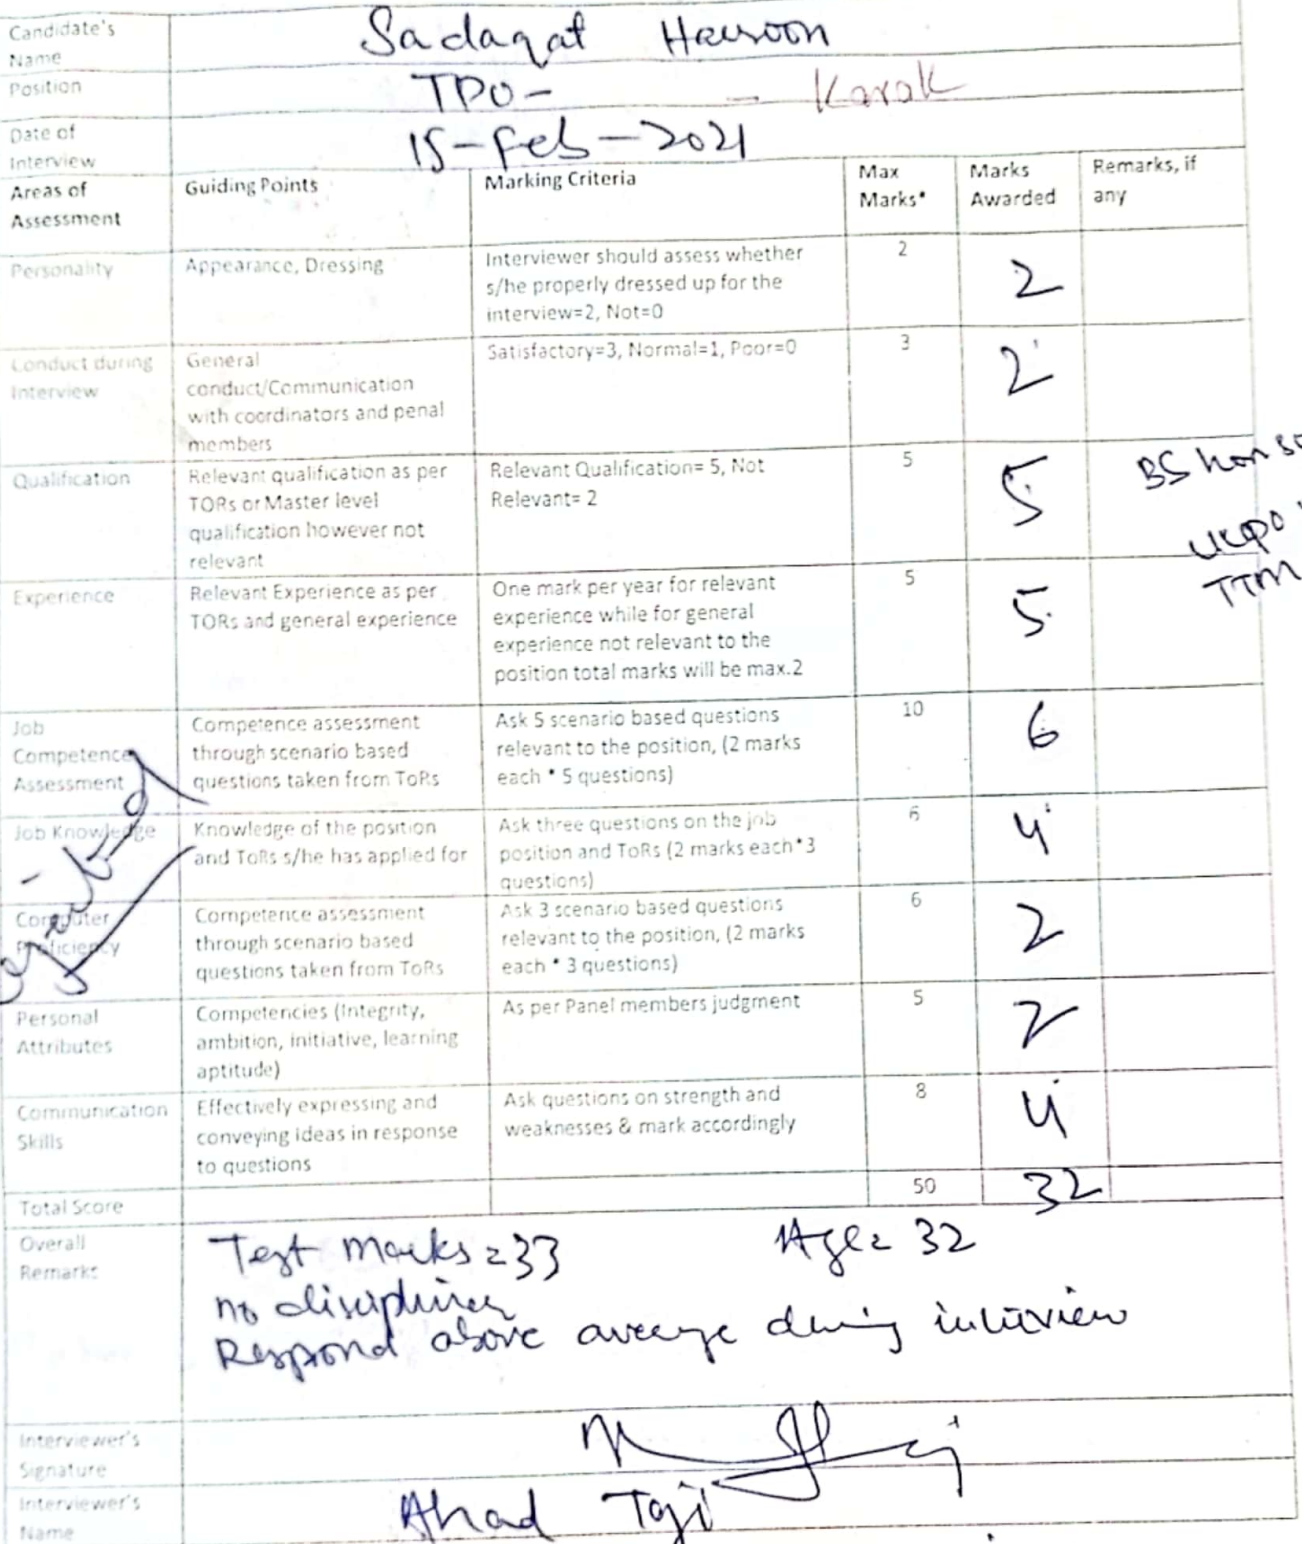 Candidate's Name Sadaqat Haroon
Position TPO- - Karak
Date of Interview 15-Feb-2021
Areas of Assessment Guiding Points Marking Criteria Max Marks* Marks Awarded Remarks, if any
Personality Appearance, Dressing Interviewer should assess whether s/he properly dressed up for the interview=2, Not=0 2 2
Conduct during Interview General conduct/Communication with coordinators and penal members Satisfactory=3, Normal=1, Poor=0 3 2
Qualification Relevant qualification as per TORs or Master level qualification however not relevant Relevant Qualification= 5, Not Relevant= 2 5 5 BS hon
Experience Relevant Experience as per TORs and general experience One mark per year for relevant experience while for general experience not relevant to the position total marks will be max.2 5 5 UCPO TTM
Job Competence Assessment Competence assessment through scenario based questions taken from ToRs Ask 5 scenario based questions relevant to the position, (2 marks each * 5 questions) 10 6
Job Knowledge Knowledge of the position and ToRs s/he has applied for Ask three questions on the job position and ToRs (2 marks each*3 questions) 6 4
Computer Proficiency Competence assessment through scenario based questions taken from ToRs Ask 3 scenario based questions relevant to the position, (2 marks each * 3 questions) 6 2
Personal Attributes Competencies (Integrity, ambition, initiative, learning aptitude) As per Panel members judgment 5 2
Communication Skills Effectively expressing and conveying ideas in response to questions Ask questions on strength and weaknesses & mark accordingly 8 4
Total Score 50 32
Overall Remarks Test Marks=33 Age= 32
no
Respond above average during interview
Interviewer's Signature
Interviewer's Name Ahad Taji